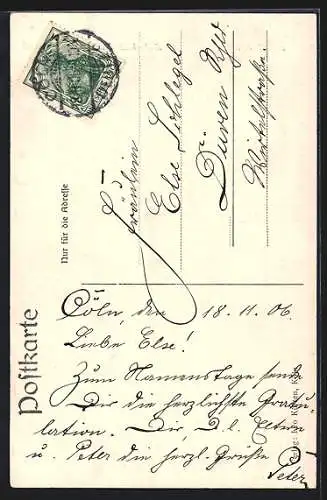 Postkarte
Nur für die Adresse
Fräulein
Else Schlegel
Düren Rhld
Wirtelstraße.
Cöln, den 18.11.06.
Liebe Else!
Zum Namenstage sende
Dir die herzlichste Gratu-
lation. Dir, D. l. Eltern
u. Peter die herzl. Grüße
Peter